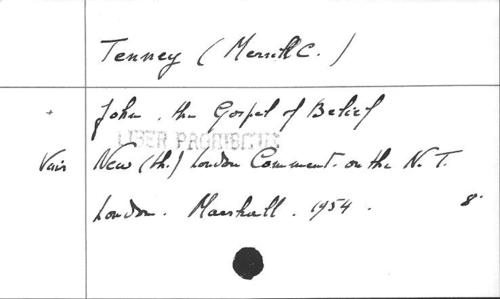 Tenney (Merrill C.)
+ John. the Gospel of Belief
LIBER PROHIBITUS
Voir New (th.) London Comment. on the N. T.
London. Marshall. 1954. 8°